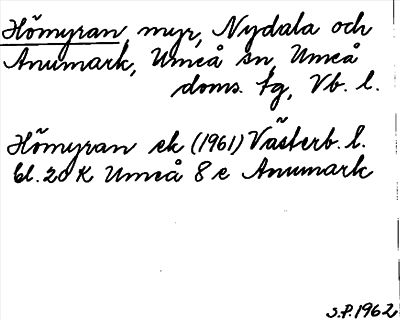 Hömyran, myr, Nydala och
Anumark, Umeå sn, Umeå
doms. tg, Vb. l.
Hömyran ek (1961) Västerb. l.
bl. 20 K Umeå 8 e Anumark
S.P. 1962